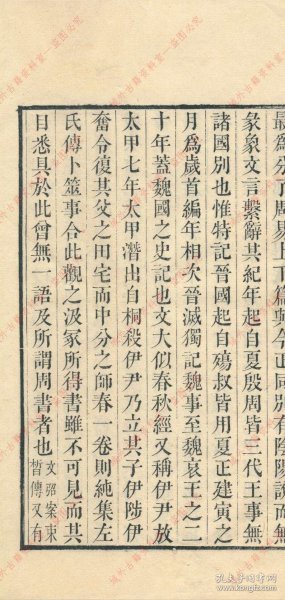 最爲分了周易上下篇與今正同别有陰陽說而無
彖象文言繫辭其紀年起自夏殷周皆三代王事無
諸國别也惟特記晉國起自殤叔皆用夏正建寅之
月爲歲首編年相次晉滅獨記魏事至魏哀王之二
十年蓋魏國之史記也文大似春秋經又稱伊尹放
太甲七年太甲潛出自桐殺伊尹乃立其子伊陟伊
奮令復其父之田宅而中分之師春一卷則純集左
氏傳卜筮事合此觀之汲冢所得書雖不可見而其
目悉具於此曾無一語及所謂周書者也文弨案束
晳傳又有